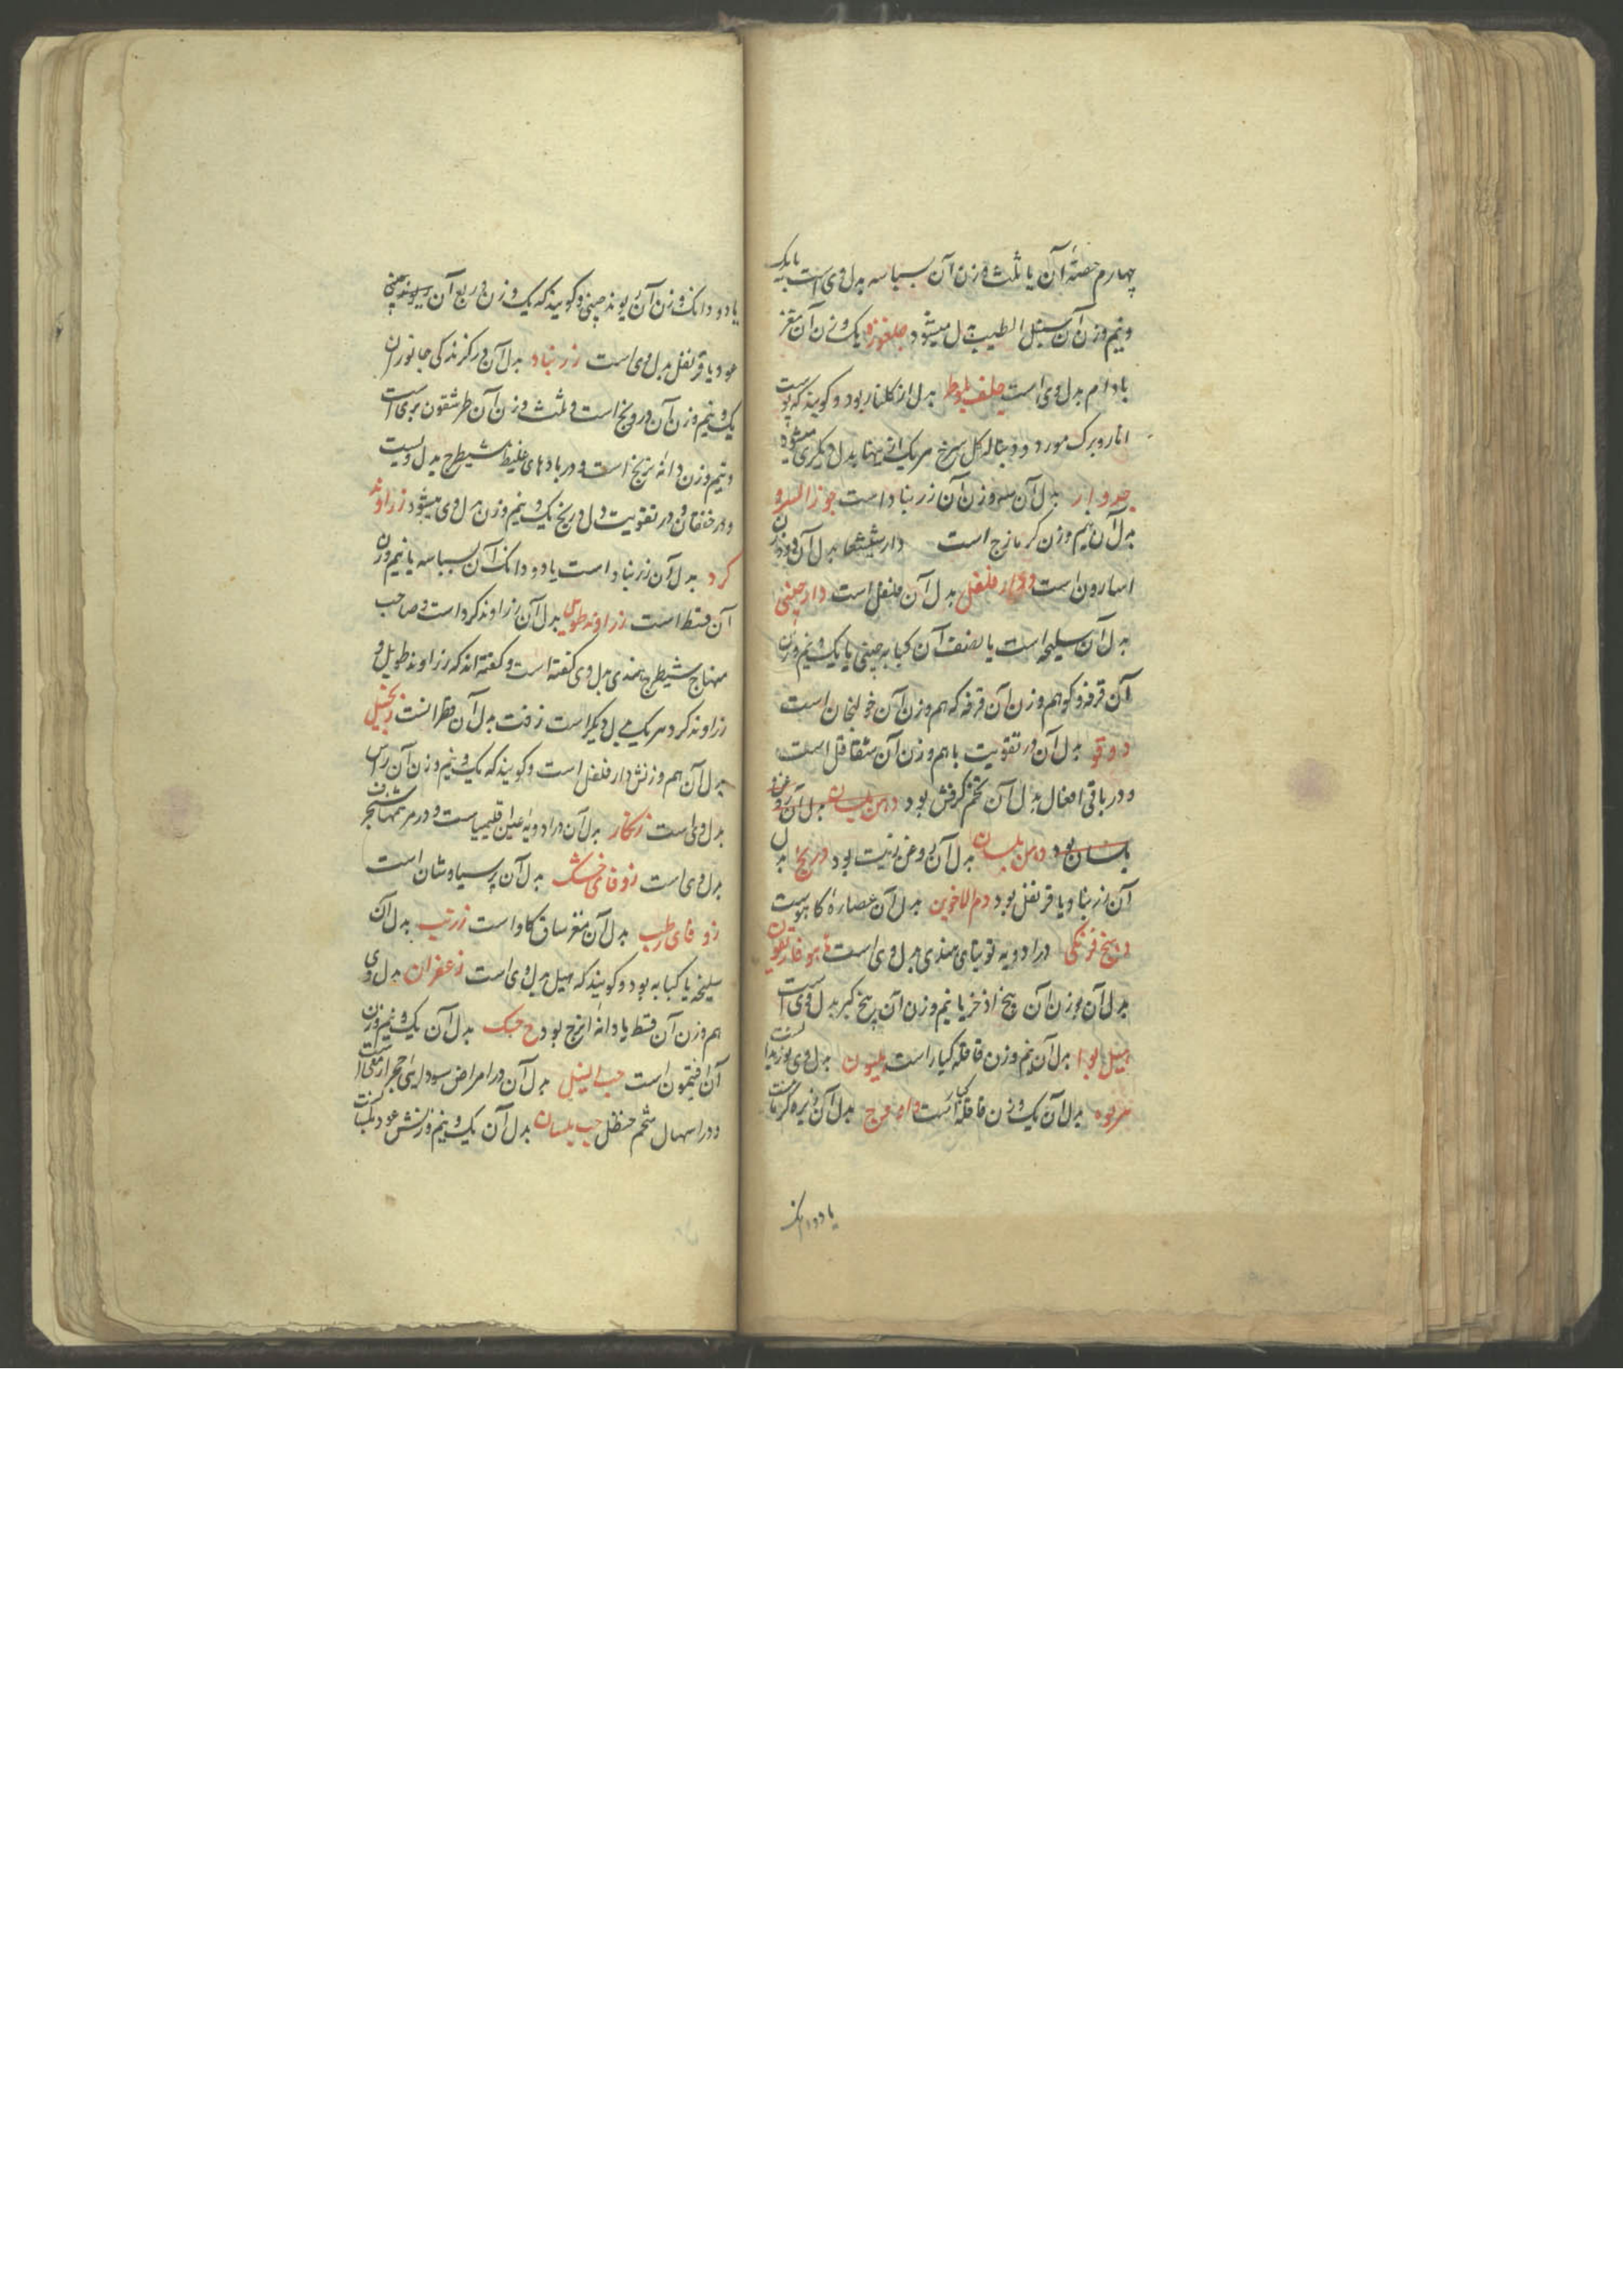 چهارم حصهٔ آن یا ثلث وزن آن بسباسه بدل وی است یا یک
و نیم وزن آن سنبل الطیب بدل میشود جلغوزه یک وزن آن مغز
بادام بدل وی است جلف بلوط بدل از گلنار بود و گویند که پوست
انار و برگ مورد و دنباله گل سرخ هر یک از اینها بدل دیگری میشود
جدوار بدل آن سه وزن آن زرنباد است جوز السرو
بدل آن نیم وزن کزمازج است دارشیشعا بدل آن دو وزن
اسارون است دار فلفل بدل آن فلفل است دارچینی
بدل آن سلیخه است یا نصف آن کبابه چینی یا یک و نیم وزن
آن قرفه و گو هم وزن آن قرفه که هم وزن آن خولنجان است
دوقو بدل آن در تقویت باه هم وزن آن شقاقل است
و در باقی افعال بدل آن تخم کرفس بود دهن بلسان بدل آن روغن
بلسان بود دهن بلسان بدل آن روغن زیت بود درونج بدل
آن زرنباد یا قرنفل بود دم الاخوین بدل آن عصاره کاهوست
دهنج فرنگی در ادویه توتیای هندی بدل وی است هوفاریقون
بدل آن هم وزن آن بیخ اذخر یا نیم وزن آن بیخ کبر بدل وی است
هیل بوا بدل آن نیم وزن قاقله کبار است هلیون بدل وی بوزیدانست
هرنوه بدل آن یک وزن قاقله کبار است بدل آن زیره کرمانیست
یا دو دانک
یا دو دانک وزن آن ریوند چینی و گویند که یک وزن و ربع آن ریوند چینی
عود یا قرنفل بدل وی است زرنباد بدل آن در گزندگی جانوران
یک و نیم وزن آن درونج است و ثلث وزن آن طرشقون بری است
و نیم وزن دانه ترنج است و در بادهای غلیظ شیطرج بدل ویست
و در خفقان و در تقویت دل درونج یک و نیم وزن بدل وی میشود زراوند
گرد بدل آن زرنباد است یا دو دانک آن بسباسه یا نیم وزن
آن قسط است زراوند طویل بدل آن زراوند گرد است و صاحب
منهاج شیطرج هندی بدل وی گفته است و گفته اند که زراوند طویل و
زراوند گرد هر یک بدل دیگر است زفت بدل آن قطرانست زنجبیل
بدل آن هم وزنش دار فلفل است و گویند که یک و نیم وزن آن راسن
بدل وی است زنگار بدل آن در ادویه عین اقلیمیاست و در مرهمها شنجرف
بدل وی است زوفای خشک بدل آن پرسیاوشان است
زوفای رطب بدل آن مغز ساق گاو است زرنب بدل آن
سلیخه یا کبابه بود و گویند که هیل بدل وی است زعفران بدل وی
هم وزن آن قسط یا دانه اترج بود بدل آن یک و نیم وزن
آن افتیمون است حب النیل بدل آن در امراض سوداوی حجر ارمنی است
و در اسهال شحم حنظل حب بلسان بدل آن یک و نیم وزنش عود بلسانست